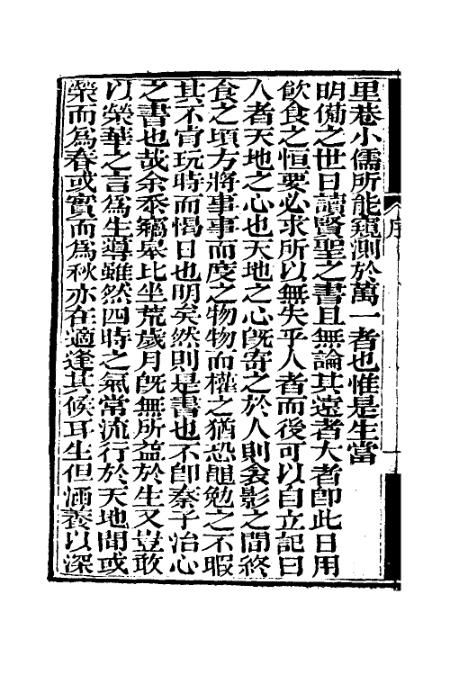 里巷小儒所能窺測於萬一者也惟是生當
明備之世日讀賢聖之書且無論其遠者大者卽此日用
飲食之恒要必求所以無失乎人者而後可以自立記曰
人者天地之心也天地之心旣寄之於人則衾影之間終
食之頃方將事事而度之物物而權之猶恐黽勉之不暇
其不肯玩時而愒日也明矣然則是書也不卽秦子治心
之書也哉余忝竊臯比坐荒歲月旣無所益於生又豈敢
以榮華之言爲生導雖然四時之氣常流行於天地間或
榮而爲春或實而爲秋亦在適逢其候耳生但涵養以深
序
一